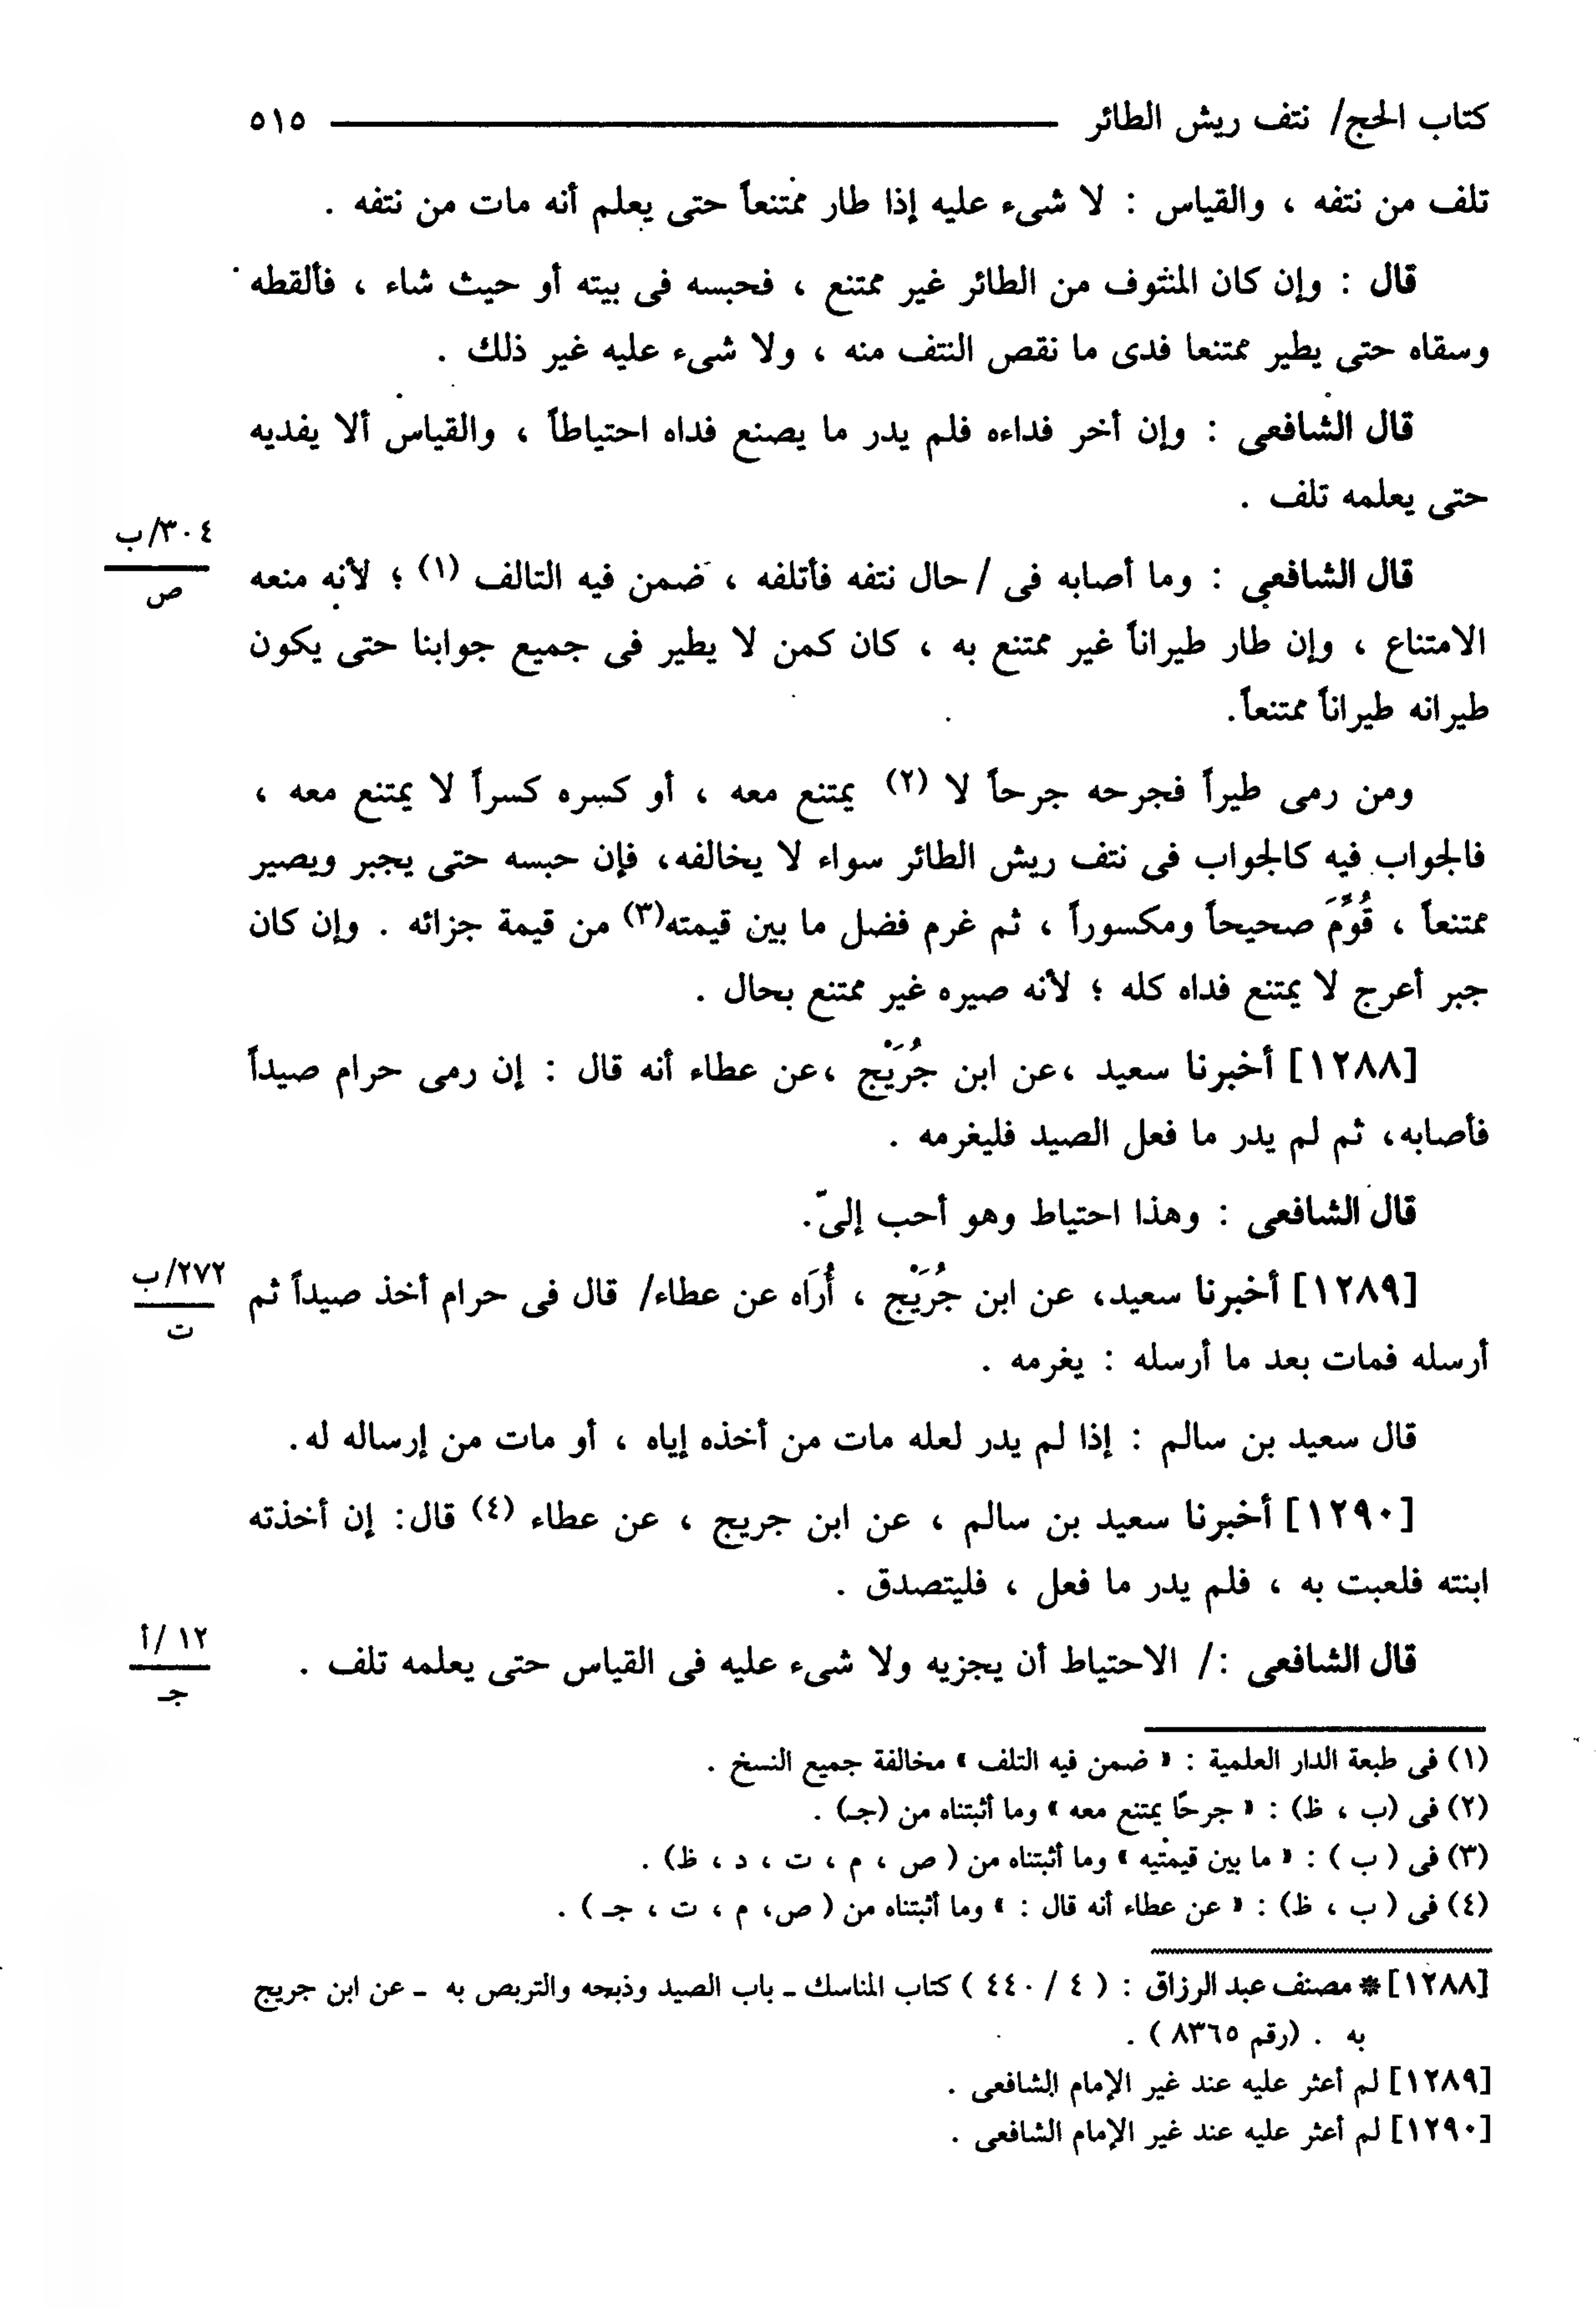 كتاب الحج/ نتف ريش الطائر ٥١٥
تلف من نتفه ، والقياس : لا شىء عليه إذا طار ممتنعاً حتى يعلم أنه مات من نتفه .
قال : وإن كان المنتوف من الطائر غير ممتنع ، فحبسه فى بيته أو حيث شاء ، فألقطه
وسقاه حتى يطير ممتنعا فدى ما نقص النتف منه ، ولا شىء عليه غير ذلك .
قال الشافعى : وإن أخر فداءه فلم يدر ما يصنع فداه احتياطاً ، والقياس ألا يفديه
حتى يعلمه تلف .
٣٠٤/ب
ص
قال الشافعي : وما أصابه فى / حال نتفه فأتلفه ، ضمن فيه التالف (١) ؛ لأنه منعه
الامتناع ، وإن طار طيراناً غير ممتنع به ، كان كمن لا يطير فى جميع جوابنا حتى يكون
طيرانه طيراناً ممتنعاً.
ومن رمى طيراً فجرحه جرحاً لا (٢) يمتنع معه ، أو كسره كسراً لا يمتنع معه ،
فالجواب فيه كالجواب فى نتف ريش الطائر سواء لا يخالفه، فإن حبسه حتى يجبر ويصير
ممتنعاً ، قُوِّمَ صحيحاً ومكسوراً ، ثم غرم فضل ما بين قيمته(٣) من قيمة جزائه . وإن كان
جبر أعرج لا يمتنع فداه كله ؛ لأنه صيره غير ممتنع بحال .
[١٢٨٨] أخبرنا سعيد ،عن ابن جُرَيْج ،عن عطاء أنه قال : إن رمى حرام صيداً
فأصابه، ثم لم يدر ما فعل الصيد فليغرمه .
قال الشافعى : وهذا احتياط وهو أحب إلىّ.
[١٢٨٩] أخبرنا سعيد، عن ابن جُرَيْج ، أُرَاه عن عطاء/ قال فى حرام أخذ صيداً ثم
٢٧٢/ب
ت
أرسله فمات بعد ما أرسله : يغرمه .
قال سعيد بن سالم : إذا لم يدر لعله مات من أخذه إياه ، أو مات من إرساله له.
[١٢٩٠] أخبرنا سعيد بن سالم ، عن ابن جريج ، عن عطاء (٤) قال: إن أخذته
ابنته فلعبت به ، فلم يدر ما فعل ، فليتصدق .
قال الشافعى :/ الاحتياط أن يجزيه ولا شىء عليه فى القياس حتى يعلمه تلف .
١٢ /أ
جـ
(١) فى طبعة الدار العلمية : « ضمن فيه التلف » مخالفة جميع النسخ .
(٢) فى (ب ، ظ) : « جرحًا يمتنع معه » وما أثبتناه من (جـ) .
(٣) فى ( ب ) : « ما بين قيمتيه » وما أثبتناه من ( ص ، م ، ت ، د ، ظ) .
(٤) فى ( ب ، ظ) : « عن عطاء أنه قال : » وما أثبتناه من ( ص، م ، ت ، جـ ) .
[١٢٨٨] * مصنف عبد الرزاق : ( ٤ / ٤٤٠ ) كتاب المناسك ـ باب الصيد وذبحه والتربص به ـ عن ابن جريج
به . (رقم ٨٣٦٥ ) .
[١٢٨٩] لم أعثر عليه عند غير الإمام الشافعى .
[١٢٩٠] لم أعثر عليه عند غير الإمام الشافعى .